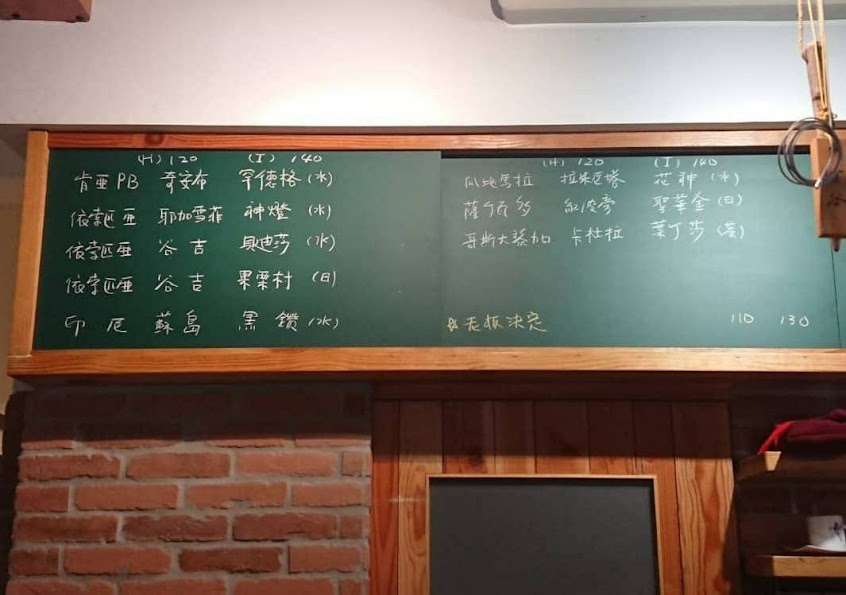 (H) 120 (I) 140
肯亞PB 奇安布 罕德格 (水)
依索匹亞 耶加雪菲 神燈 (水)
依索匹亞 谷吉 貝迪莎 (水)
依索匹亞 谷吉 果栗村 (日)
印尼 蘇島 黑鑽 (水)
(H) 120 (I) 140
瓜地馬拉 拉米尼塔 花神 (水)
薩爾瓦多 紅波旁 聖華金 (日)
哥斯大黎加 卡杜拉 葉丁莎 (蜜)
老板決定 110 130